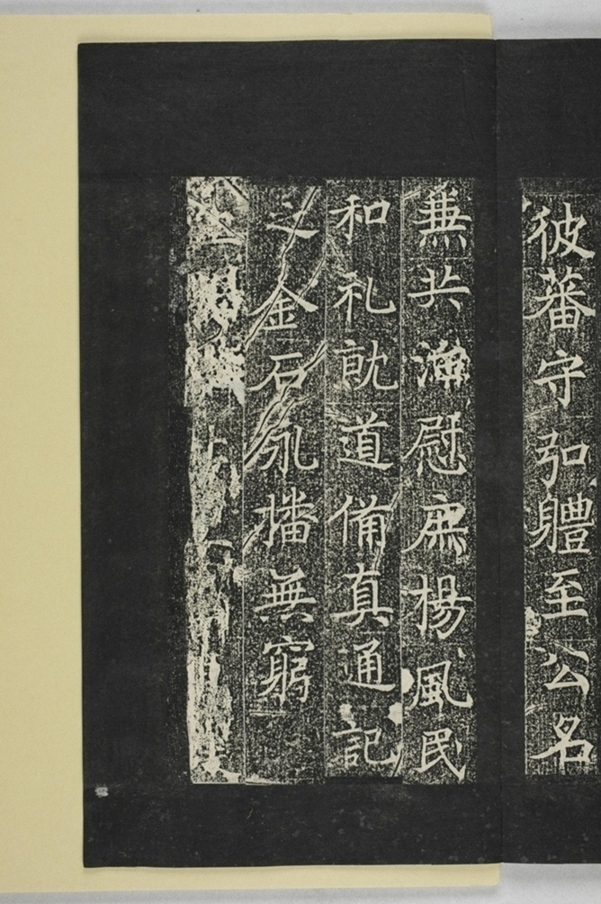 彼蕃守弘軆至公名
無共瀹慰庶楊風民
和礼就道備真通記
之金石永播無窮